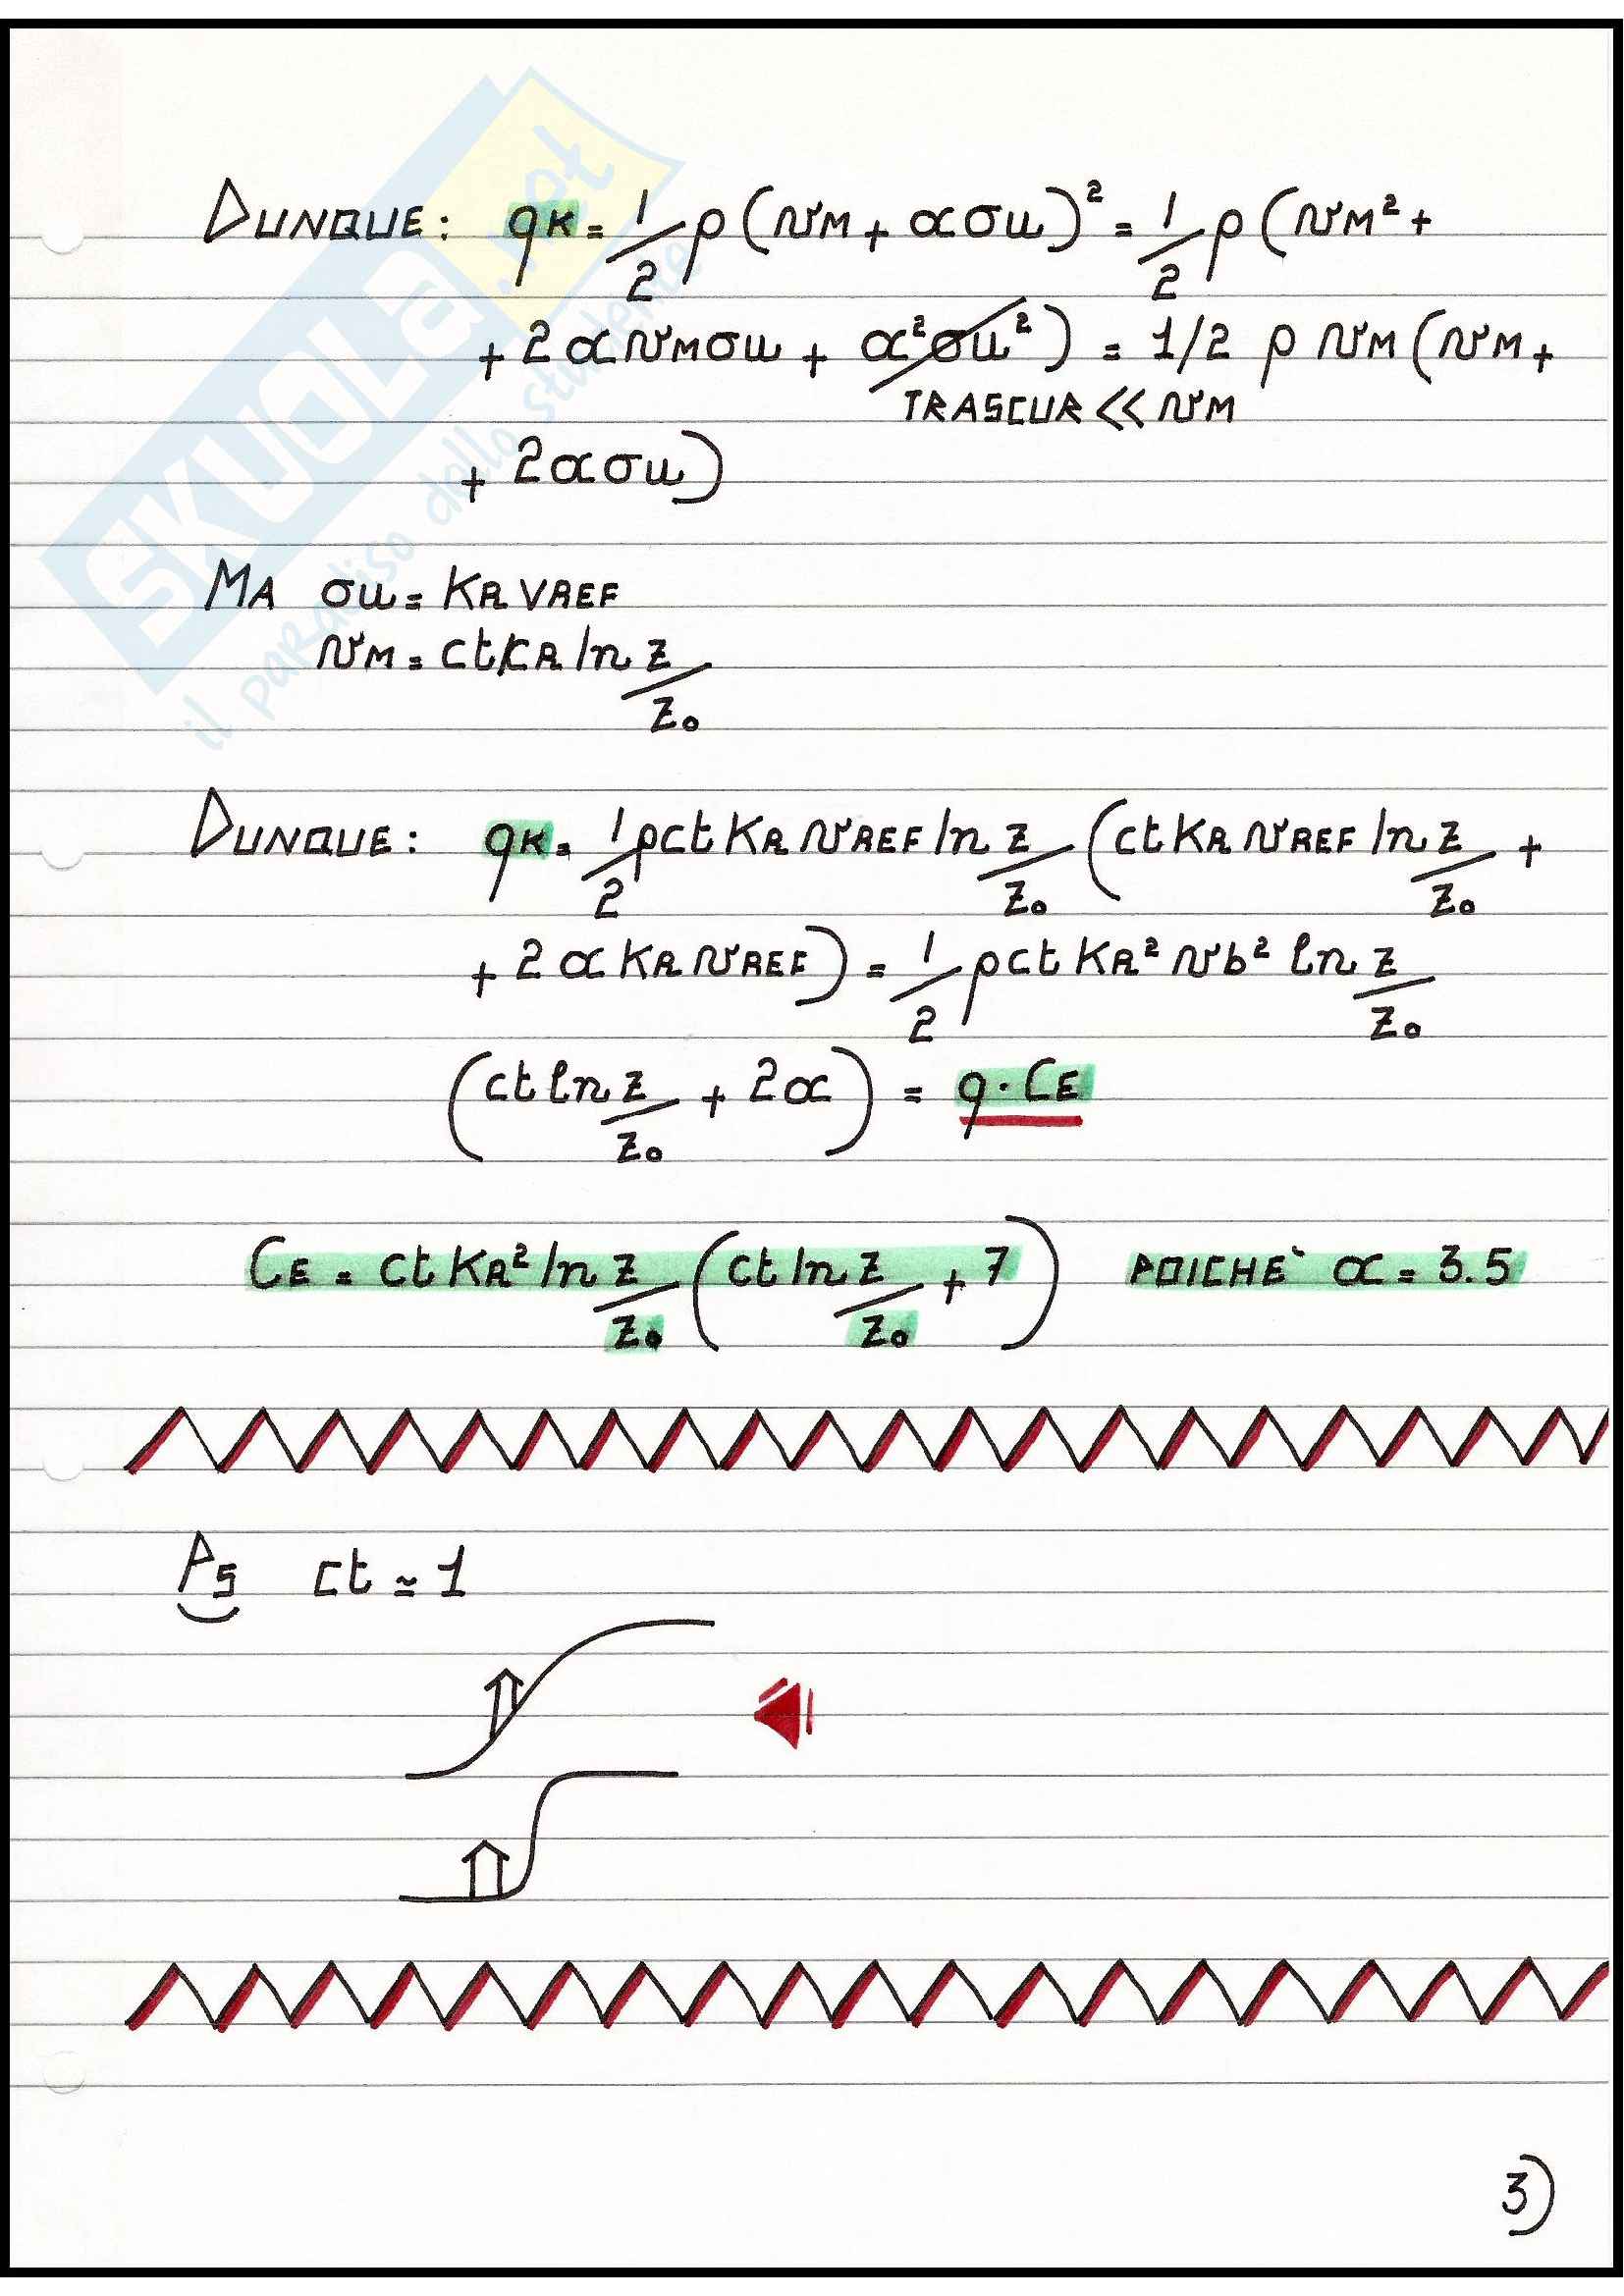 SKUOLA.net
il paradiso dello studente
DUNQUE: qK = 1/2 ρ (vM + ασu)² = 1/2 ρ (vM² +
+ 2αvMσu + α²σu²) = 1/2 ρ vM (vM +
TRASCUR << vM
+ 2ασu)
MA σu = KR VREF
vM = ct KR ln Z/Z₀
DUNQUE: qK = 1/2 ρ ct KR vREF ln Z/Z₀ (ct KR vREF ln Z/Z₀ +
+ 2α KR vREF) = 1/2 ρ ct KR² vb² ln Z/Z₀
(ct ln Z/Z₀ + 2α) = q · CE
CE = ct KR² ln Z/Z₀ (ct ln Z/Z₀ + 7) POICHE` α = 3.5
PS ct ≃ 1
3)